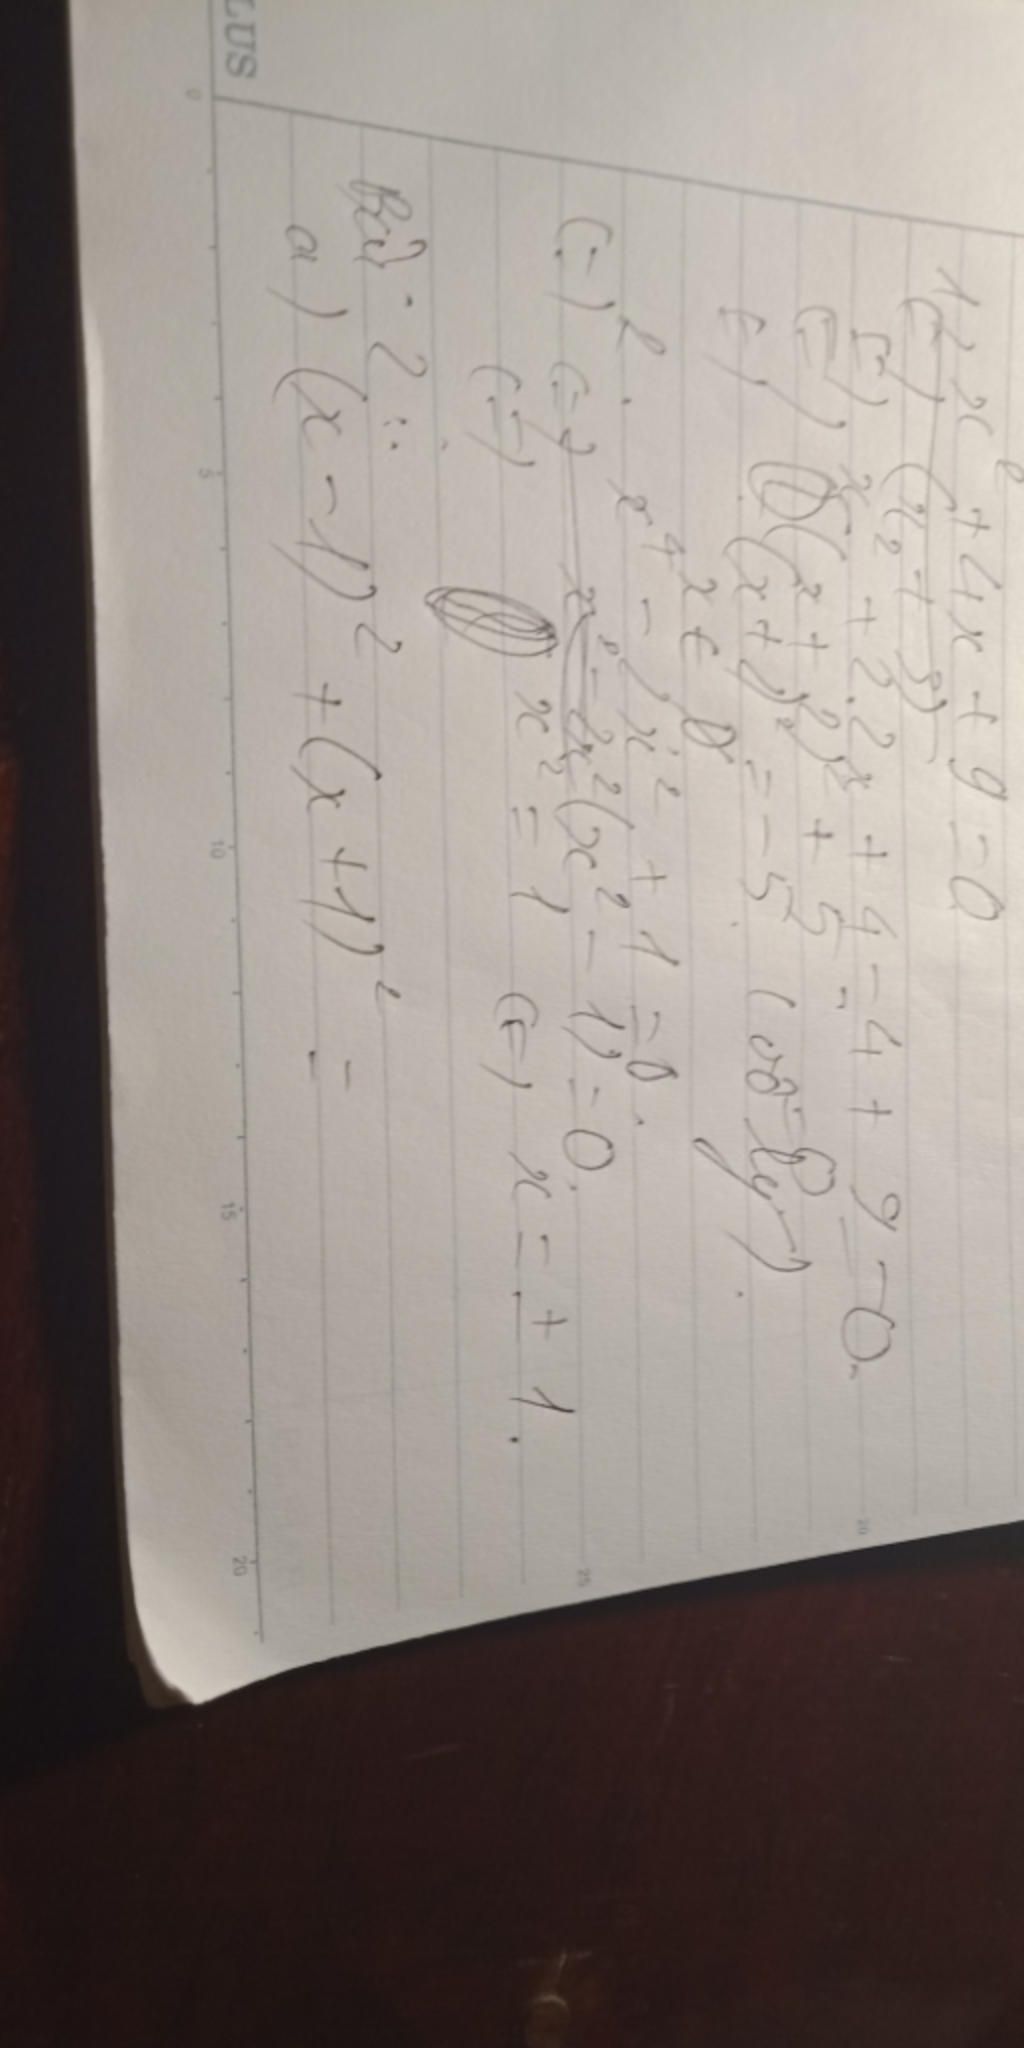 1) x² + 4x + 9 = 0
(=) (x² + 3)
(=) x² + 2.2x + 4 - 4 + 9 = 0.
(=) (x + 2)² + 5 =
(=) (x + 2)² = -5 (vô lý).
x ∈ ∅
2. x⁴ - 2x² + 1 = 0.
(=) (=) x² - 2x²(x² - 1) = 0.
(=) x² = 1 (=) x = ± 1.
Bài 2:
a) (x - 1)² + (x + 1)² =
LUS
0 5 10 15 20
20
25